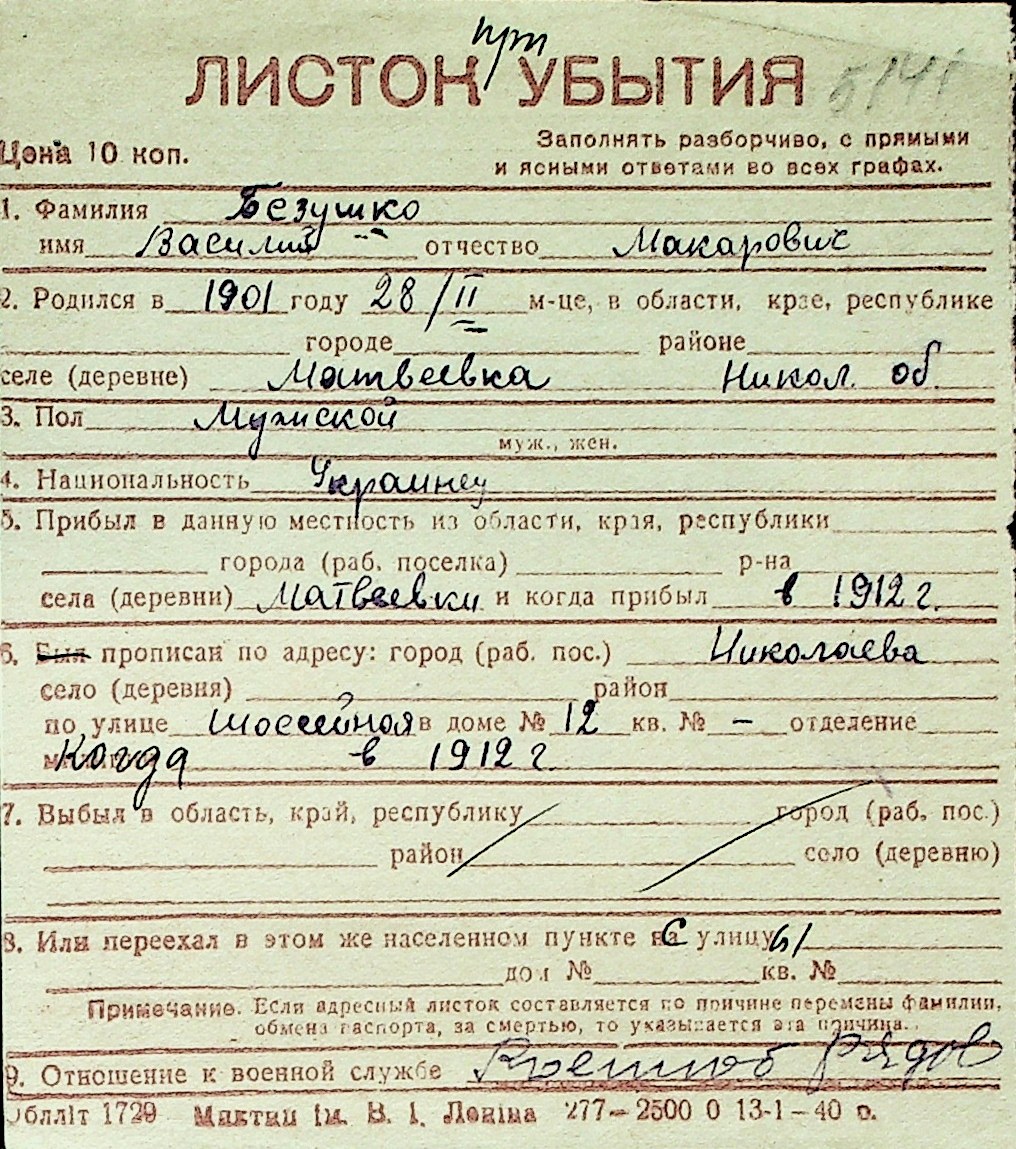 ЛИСТОК при УБЫТИЯ 5141
Цена 10 коп.
Заполнять разборчиво, с прямыми
и ясными ответами во всех графах.
1. Фамилия Безушко
имя Василий отчество Макарович
2. Родился в 1901 году 28/II м-це, в области, крае, республике
городе районе
селе (деревне) Матвеевка Никол. об.
3. Пол Мужской
муж., жен.
4. Национальность Украинец
5. Прибыл в данную местность из области, края, республики
города (раб. поселка) р-на
села (деревни) Матвеевки и когда прибыл в 1912 г.
6. Был прописан по адресу: город (раб. пос.) Николаева
село (деревня) район
по улице Шоссейная в доме № 12 кв. № – отделение
Когда в 1912 г.
7. Выбыл в область, край, республику город (раб. пос.)
район село (деревню)
8. Или переехал в этом же населенном пункте С улицы
дом № кв. №
Примечание. Если адресный листок составляется по причине перемены фамилии,
обмена паспорта, за смертью, то указывается эта причина.
9. Отношение к военной службе Военнооб Рядов
Обллiт 1729 Миктип iм. В. I. Ленiна 277–2500 0 13-1–40 р.